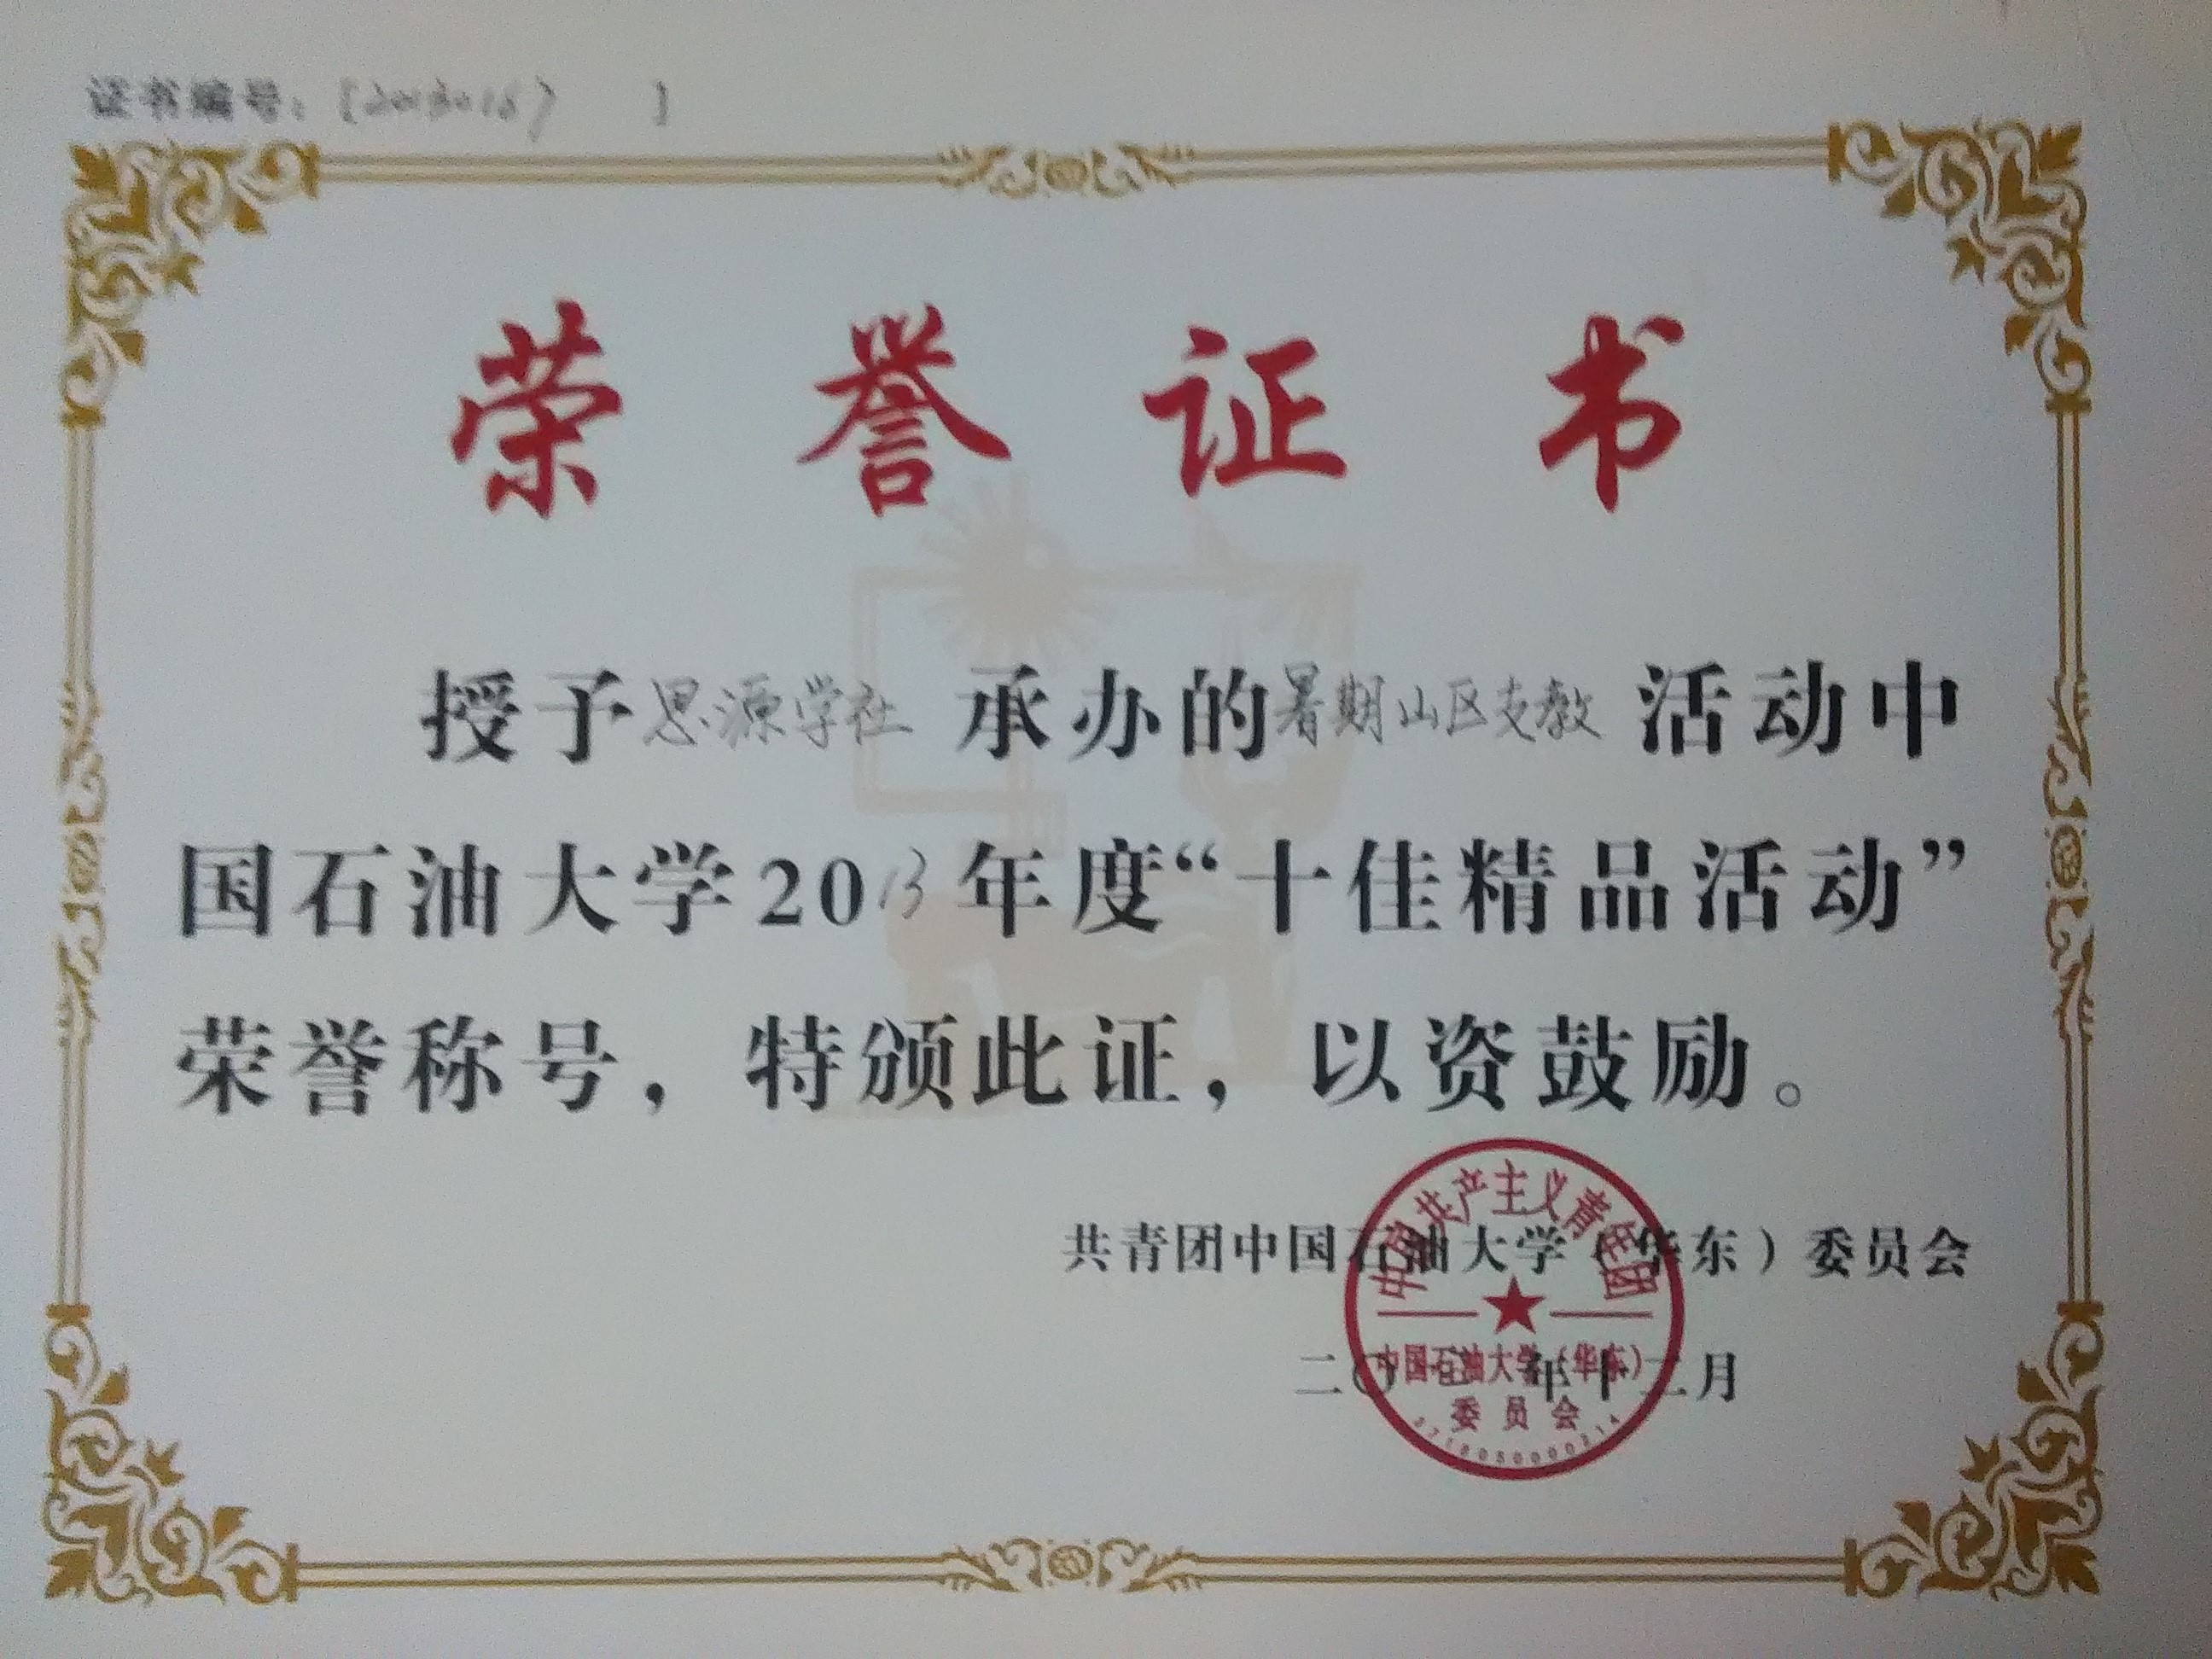 证书编号：[2013016 ]
荣誉证书
授予思源学社承办的暑期山区支教活动中
国石油大学2013年度“十佳精品活动”
荣誉称号，特颁此证，以资鼓励。
共青团中国石油大学（华东）委员会
二〇 年十二月
中国共产主义青年团
中国石油大学（华东）
委员会